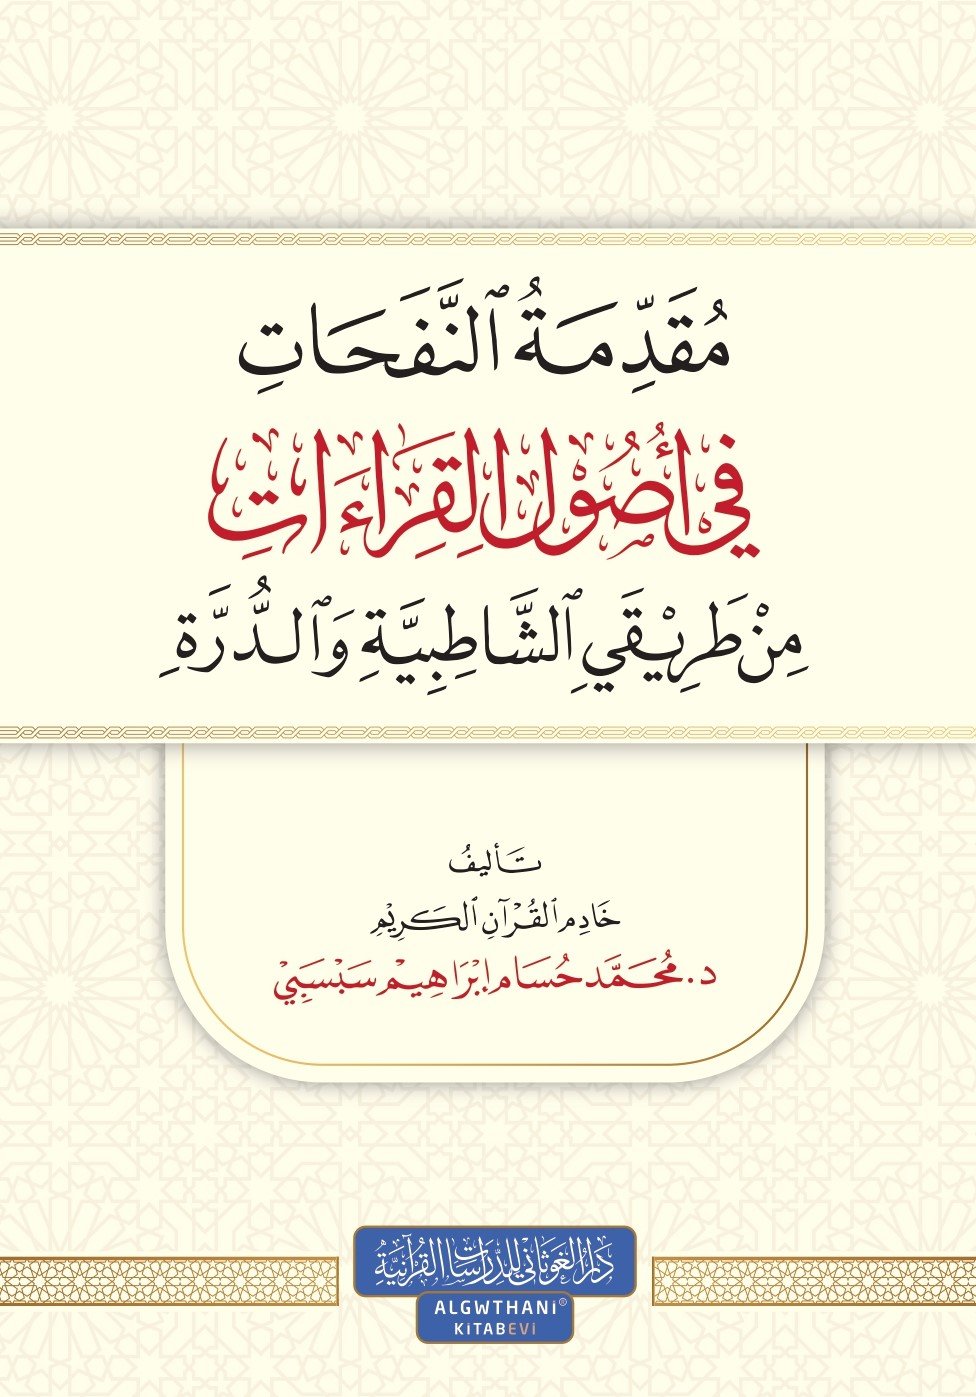 مُقَدِّمَةُ ٱلنَّفَحَاتِ
فِي أُصُوْلِ القِرَاءَاتِ
مِنْ طَرِيْقَيِ ٱلشَّاطِبِيَّةِ وَٱلدُّرَّةِ
تَأليفُ
خَادِمِ ٱلقُرْآنِ ٱلكَرِيْمِ
د. مُحَمَّد حُسَام إِبْرَاهِيْم سَبْسَبِيْ
دَارُ الغَوْثَانِي لِلدِّرَاسَاتِ القُرْآنِيَّةِ
ALGWTHANİ®
KİTABEVİ